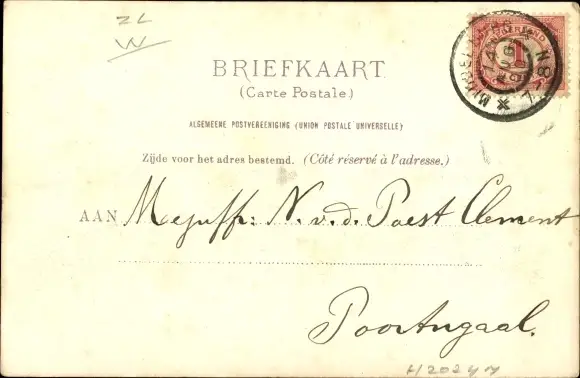 ZL
W
BRIEFKAART
(Carte Postale.)
ALGEMEENE POSTVEREENIGING (UNION POSTALE UNIVERSELLE)
Zijde voor het adres bestemd. (Côté réservé à l'adresse.)
AAN Mejuffr: N. v. d. Poest Clement
Poortugaal.
H202 M